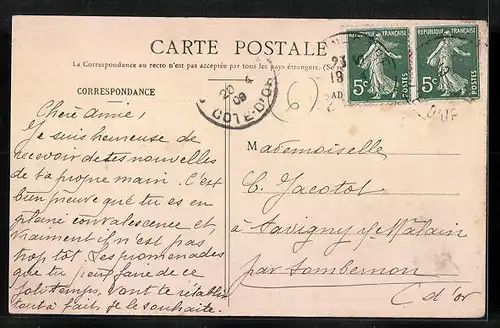 CARTE POSTALE
La Correspondance au recto n'est pas acceptée par tous les pays étrangers. (Se
CORRESPONDANCE
Chère amie,
Je suis heureuse de
recevoir de tes nouvelles
de ta propre main. C'est
bien preuve que tu es en
pleine convalescence et,
vraiment il n'est pas
trop tôt. Les promenades
que tu peux faire de ce
joli temps, vont te rétablir
tout à fait, je le souhaite.
20
09
COTE-D'OR
6
REPUBLIQUE FRANÇAISE
5c
POSTES
REPUBLIQUE FRANÇAISE
5c
POSTES
23
19
AD
Mademoiselle
C. Jacotot
à Savigny s/ Mâlain
par Sombernon
C d'or